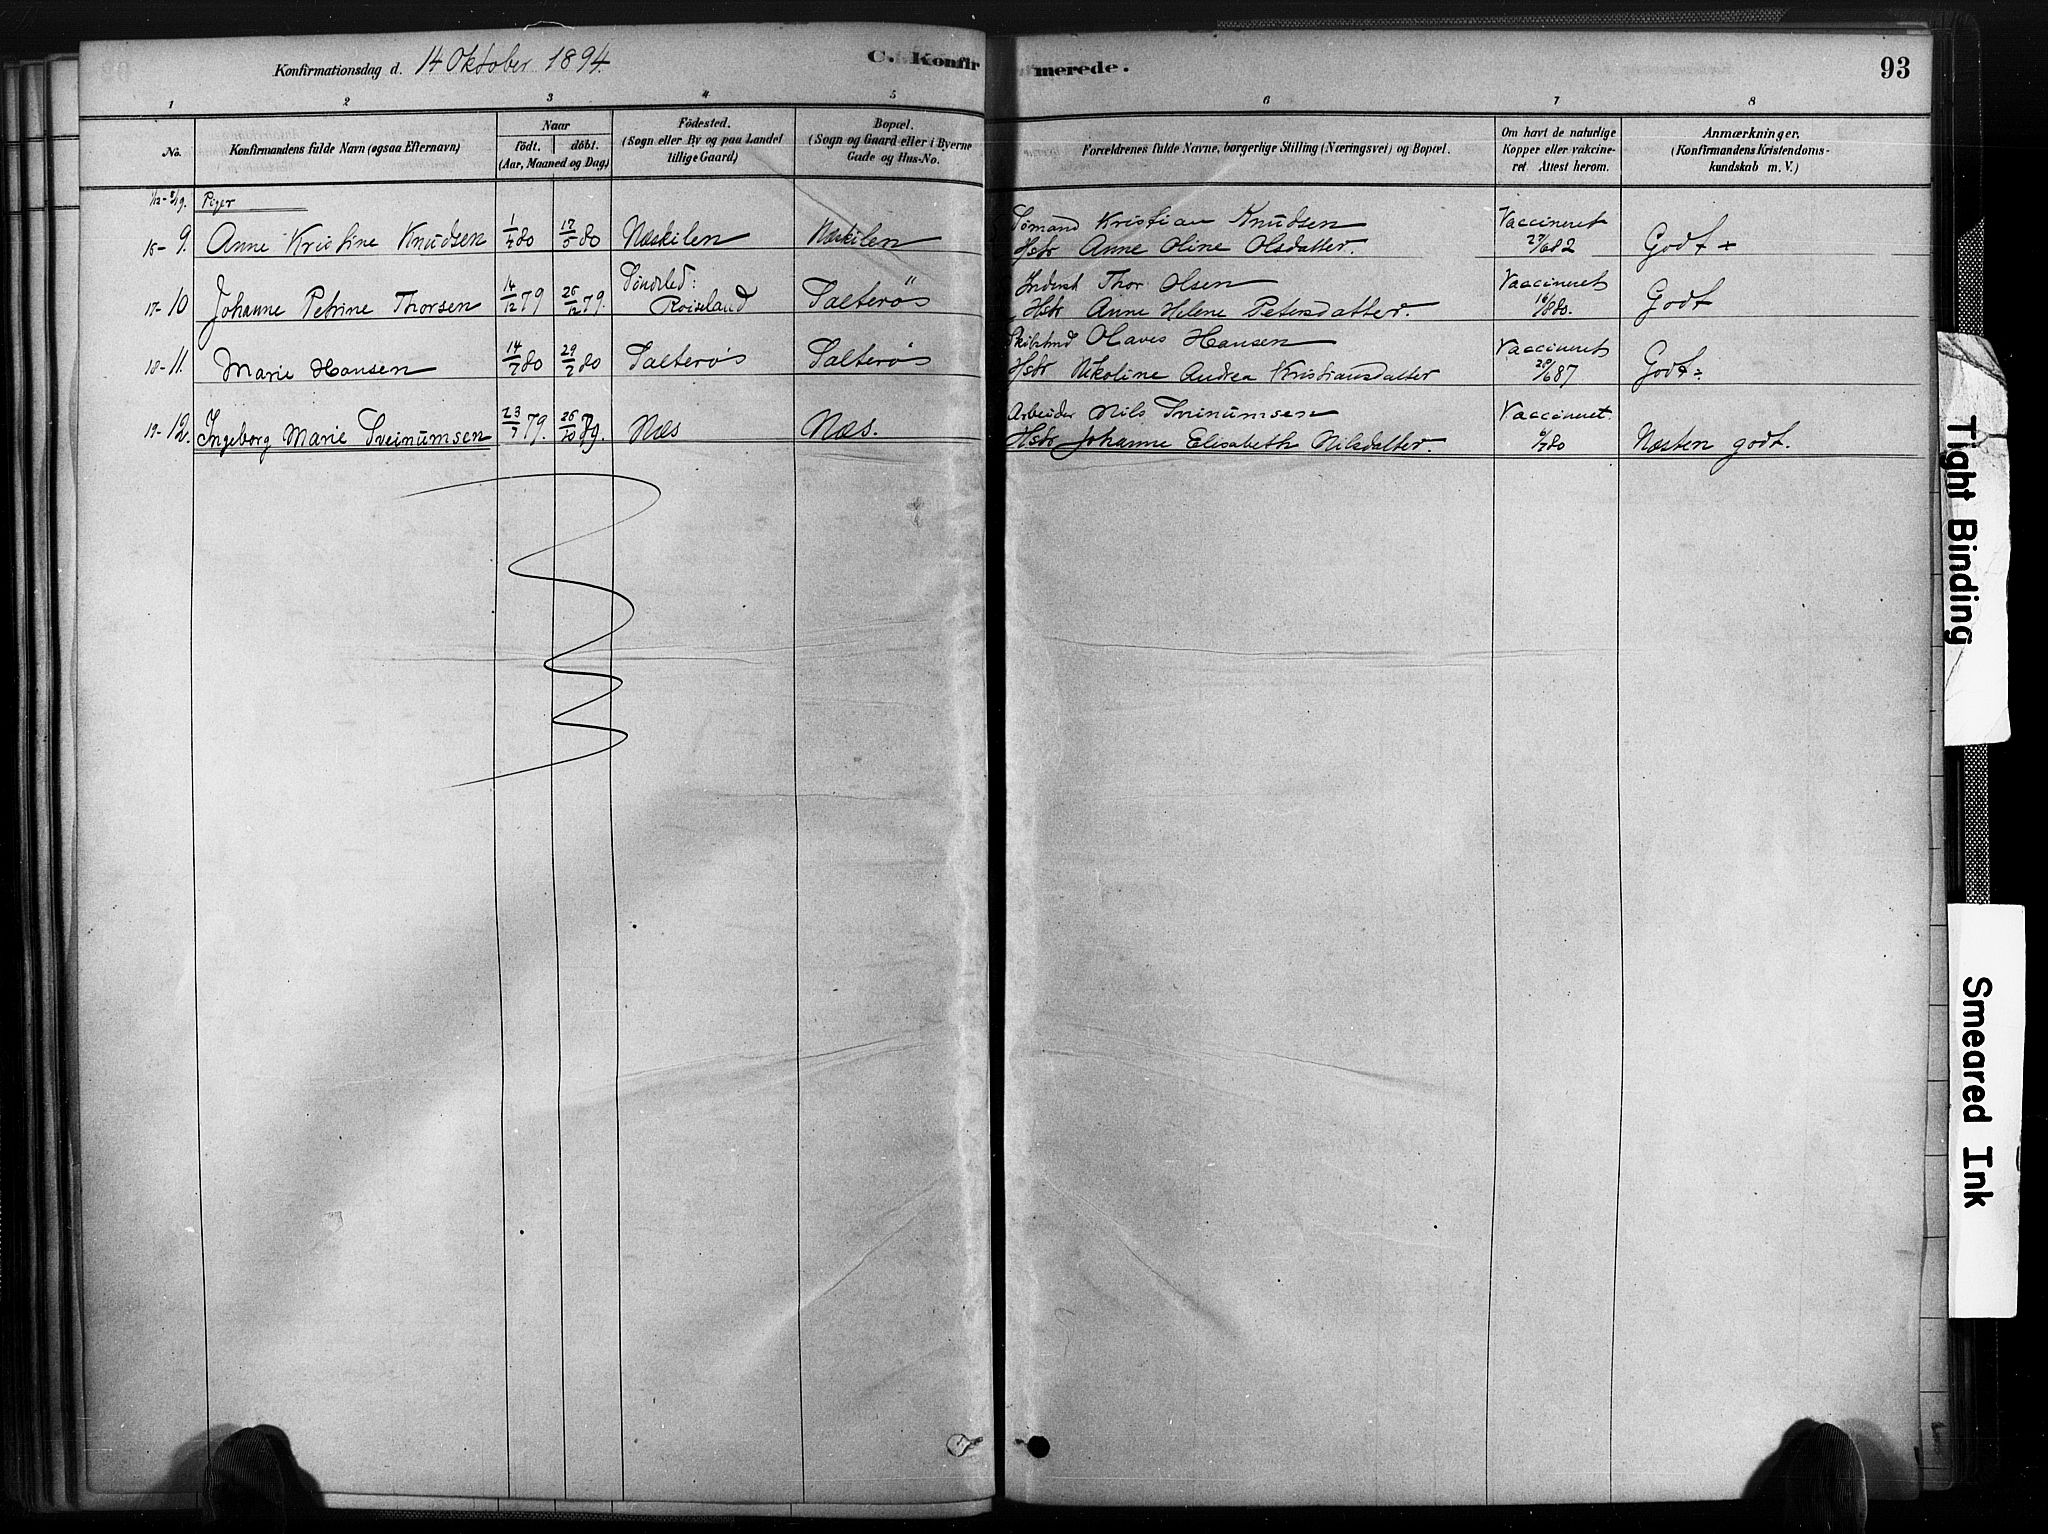 Konfirmationsdag d. 14 Oktober 1894.
C. Konfirmerede.
93
1 2 3 4 5 6 7 8
No.
Konfirmandens fulde Navn (ogsaa Efternavn)
Naar
födt. döbt.
(Aar, Maaned og Dag)
Födested.
(Sogn eller By og paa Landet
tillige Gaard)
Bopæl.
(Sogn og Gaard eller i Byerne
Gade og Hus-No.
Forældrenes fulde Navne, borgerlige Stilling (Næringsvei) og Bopæl.
Om havt de naturlige
Kopper eller vaccine-
ret. Attest herom.
Anmærkninger.
(Konfirmandens Kristendoms-
kundskab m. V.)
Piger
Sömand Kristian Knudsen Vaccineret
9. Anne Kristine Knudsen 1/4 80 17/5 80 Næskilen Næskilen Hstr Anne Oline Olsdatter. Godt +
Söndeled: Inderst Thor Olsen Vaccineret
17- 10 Johanne Petrine Thorsen 14/12 79 26/12 79. Röiseland Salterös Hstr Anne Helene Petersdatter. 16/8 80. Godt
Olaves Hansen Vaccineret
18- 11. Marie Hansen 14/7 80 29/7 80 Salterös Salterös Hstr Nikoline Andrea Kristiansdatter 20/6 87 Godt÷
Arbeider Nils Sveinumsen Vaccineret.
19- 12. Ingeborg Marie Sveinumsen 23/7 79. 26/10 79. Næs Næs. Hstr Johanne Elisabeth Nilsdatter. Næsten godt.
Tight Binding
Smeared Ink